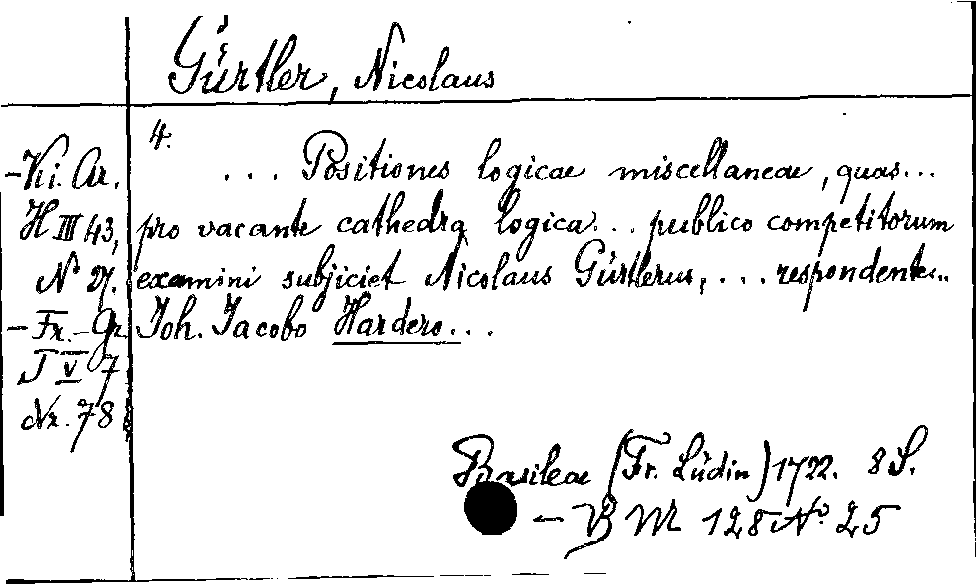 Gürtler, Nicolaus
4.
... Positiones logicae miscellaneae, quas...
pro vacante cathedra logica... publico competitorum
examini subjiciet Nicolaus Gürtlerus, ... respondente...
Joh. Jacobo Hardero...
- Ki. Ar.
H III 43,
No 27.
- Fr.-Gr.
J V 7
Nr. 78
Basileae (Fr. Lüdin) 1722. 8 S.
- VB M 128 No 25